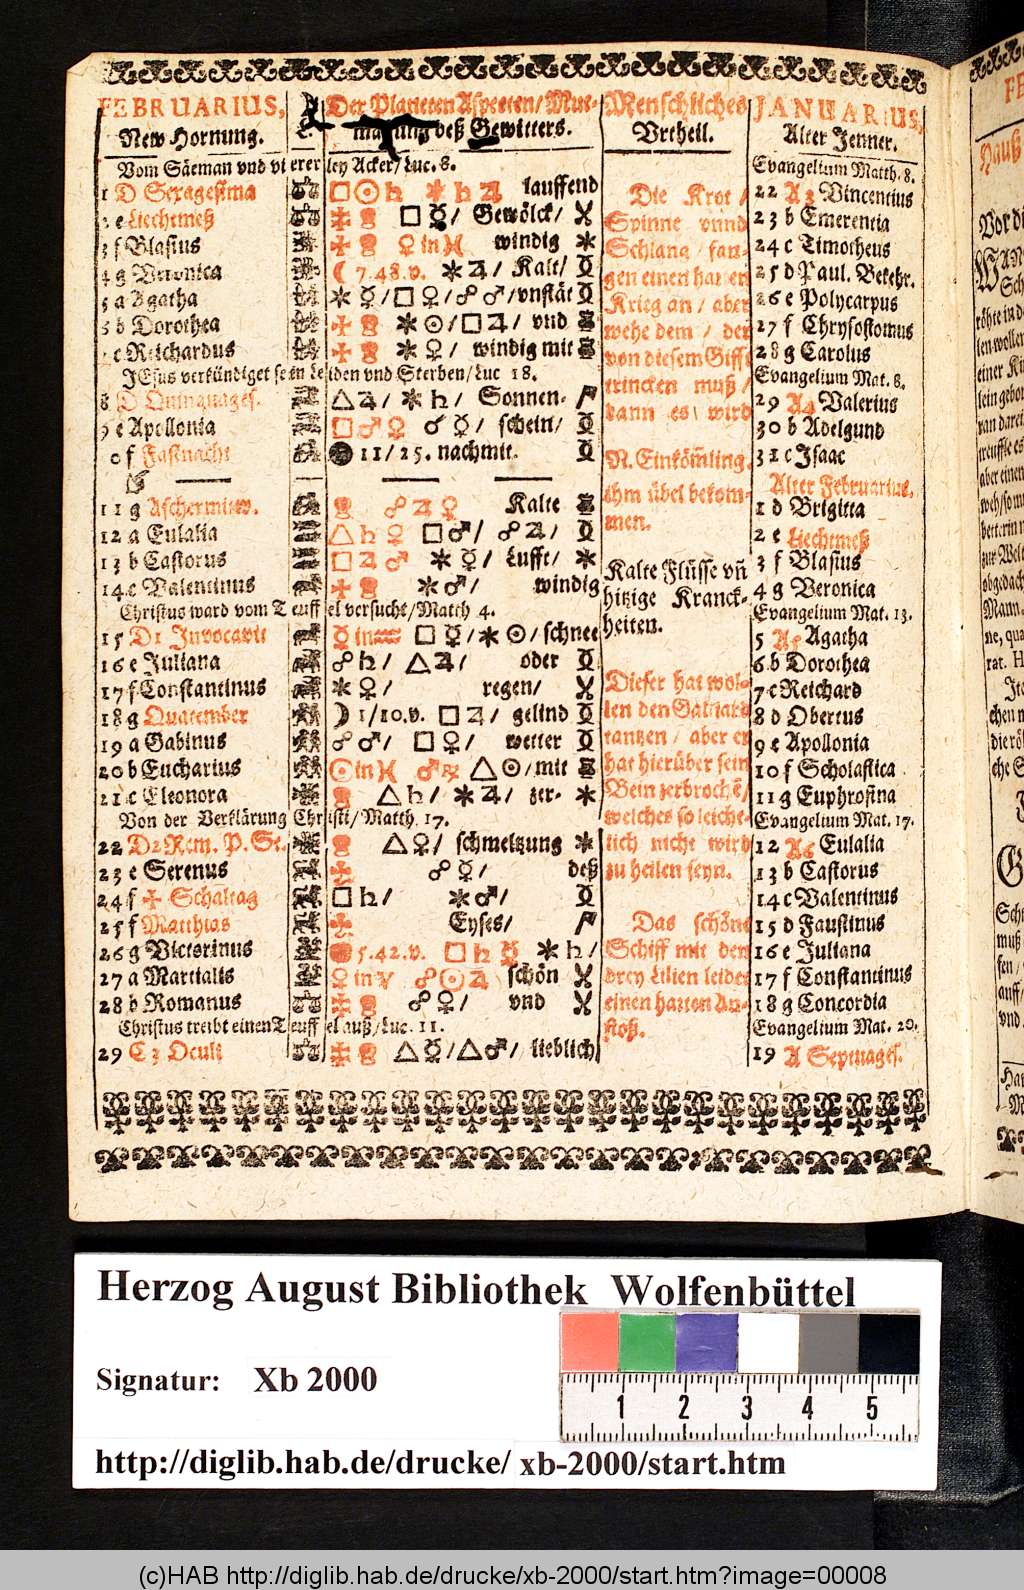 FEBRUARIUS,
New Hornung.
Der Planeten Aspecten/Mut-
massung deß Gewitters.
Menschliches
Vrtheil.
JANUARIUS,
Alter Jenner.
Vom Säeman vnd vi erer ley Acker/Luc. 8.
1 D Sexagesima □☉♄ ✶♄♃ lauffend
2 e Liechtmeß □☿/ Gewölck/
3 f Blasius ♀in♓ windig
4 g Veronica ☾7.48.v. ✶♃/ Kalt/
5 a Agatha ✶☿/□♀/☍♂/vnstät
6 b Dorothea ✶☉/□♃/ vnd
7 c Reichardus ✶♀/ windig mit
JEsus verkündiget sein Leiden vnd Sterben/Luc 18.
8 D Quinquages. △♃/✶♄/ Sonnen-
9 e Apollonia □♂♀ ☌☿/ schein/
10 f Faßnacht 11/25. nachmit.
11 g Aschermitw. ☍♃♀ Kalte
12 a Eulalia △♄♀ □♂/ ☍♃/
13 b Castorus □♃♂ ✶☿/ Lufft/
14 c Valentinus ✶♂/ windig
Christus ward vom Teuff el versucht/Matth 4.
15 D1 Invocavit ☿in♒ □☿/✶☉/schnee
16 e Juliana ☍♄/ △♃/ oder
17 f Constantinus ✶♀/ regen/
18 g Quatember ☽1/10.v. □♃/ gelind
19 a Gabinus ☍♂/ □♀/ wetter
20 b Eucharius ☉in♓ ♂℞ △☉/mit
21 c Eleonora △♄/ ✶♃/ zer-
Von der Verklärung Christi/Matth. 17.
22 D2 Rem. P. St. △♀/ schmeltzung
23 e Serenus ☍☿/ deß
24 f Schaltag □♄/ ✶♂/
25 f Matthias Eyses/
26 g Victorinus 5.42.v. □♄☿ ✶♄/
27 a Martialis ♀in♈ ☍☉♃ schön
28 b Romanus ☍♀/ vnd
Christus treibt einen Teuff el auß/Luc. 11.
29 C3 Oculi △☿/△♂/ lieblich
Die Krot /
Spinne vnnd
Schlang / fan-
gen einen harten
Krieg an / aber
wehe dem / der
von diesem Gifft
trincken muß /
kann es / wird
N. Einköm̃ling
ihm übel bekom-
men.
Kalte Flüsse vñ
hitzige Kranck-
heiten.
Dieser hat wol-
len den Galliard
tantzen / aber er
hat hierüber sein
Bein zerbrochẽ/
welches so leicht-
lich nicht wird
zu heilen seyn.
Das schöne
Schiff mit den
drey Lilien leidet
einen harten An-
stoß.
Evangelium Matth. 8.
22 A3 Vincentius
23 b Emerentia
24 c Timotheus
25 d Paul. Bekehr.
26 e Polycarpus
27 f Chrysostomus
28 g Carolus
Evangelium Mat. 8.
29 A4 Valerius
30 b Adelgund
31 c Isaac
Alter Februarius.
1 d Brigitta
2 e Liechtmeß
3 f Blasius
4 g Veronica
Evangelium Mat. 13.
5 A5 Agatha
6 b Dorothea
7 c Reichard
8 d Obertus
9 e Apollonia
10 f Scholastica
11 g Euphrosina
Evangelium Mat. 17.
12 A6 Eulalia
13 b Castorus
14 c Valentinus
15 d Faustinus
16 e Juliana
17 f Constantinus
18 g Concordia
Evangelium Mat. 20.
19 A Septuages.
Herzog August Bibliothek Wolfenbüttel
Signatur: Xb 2000
1 2 3 4 5
http://diglib.hab.de/drucke/ xb-2000/start.htm
(c)HAB http://diglib.hab.de/drucke/xb-2000/start.htm?image=00008